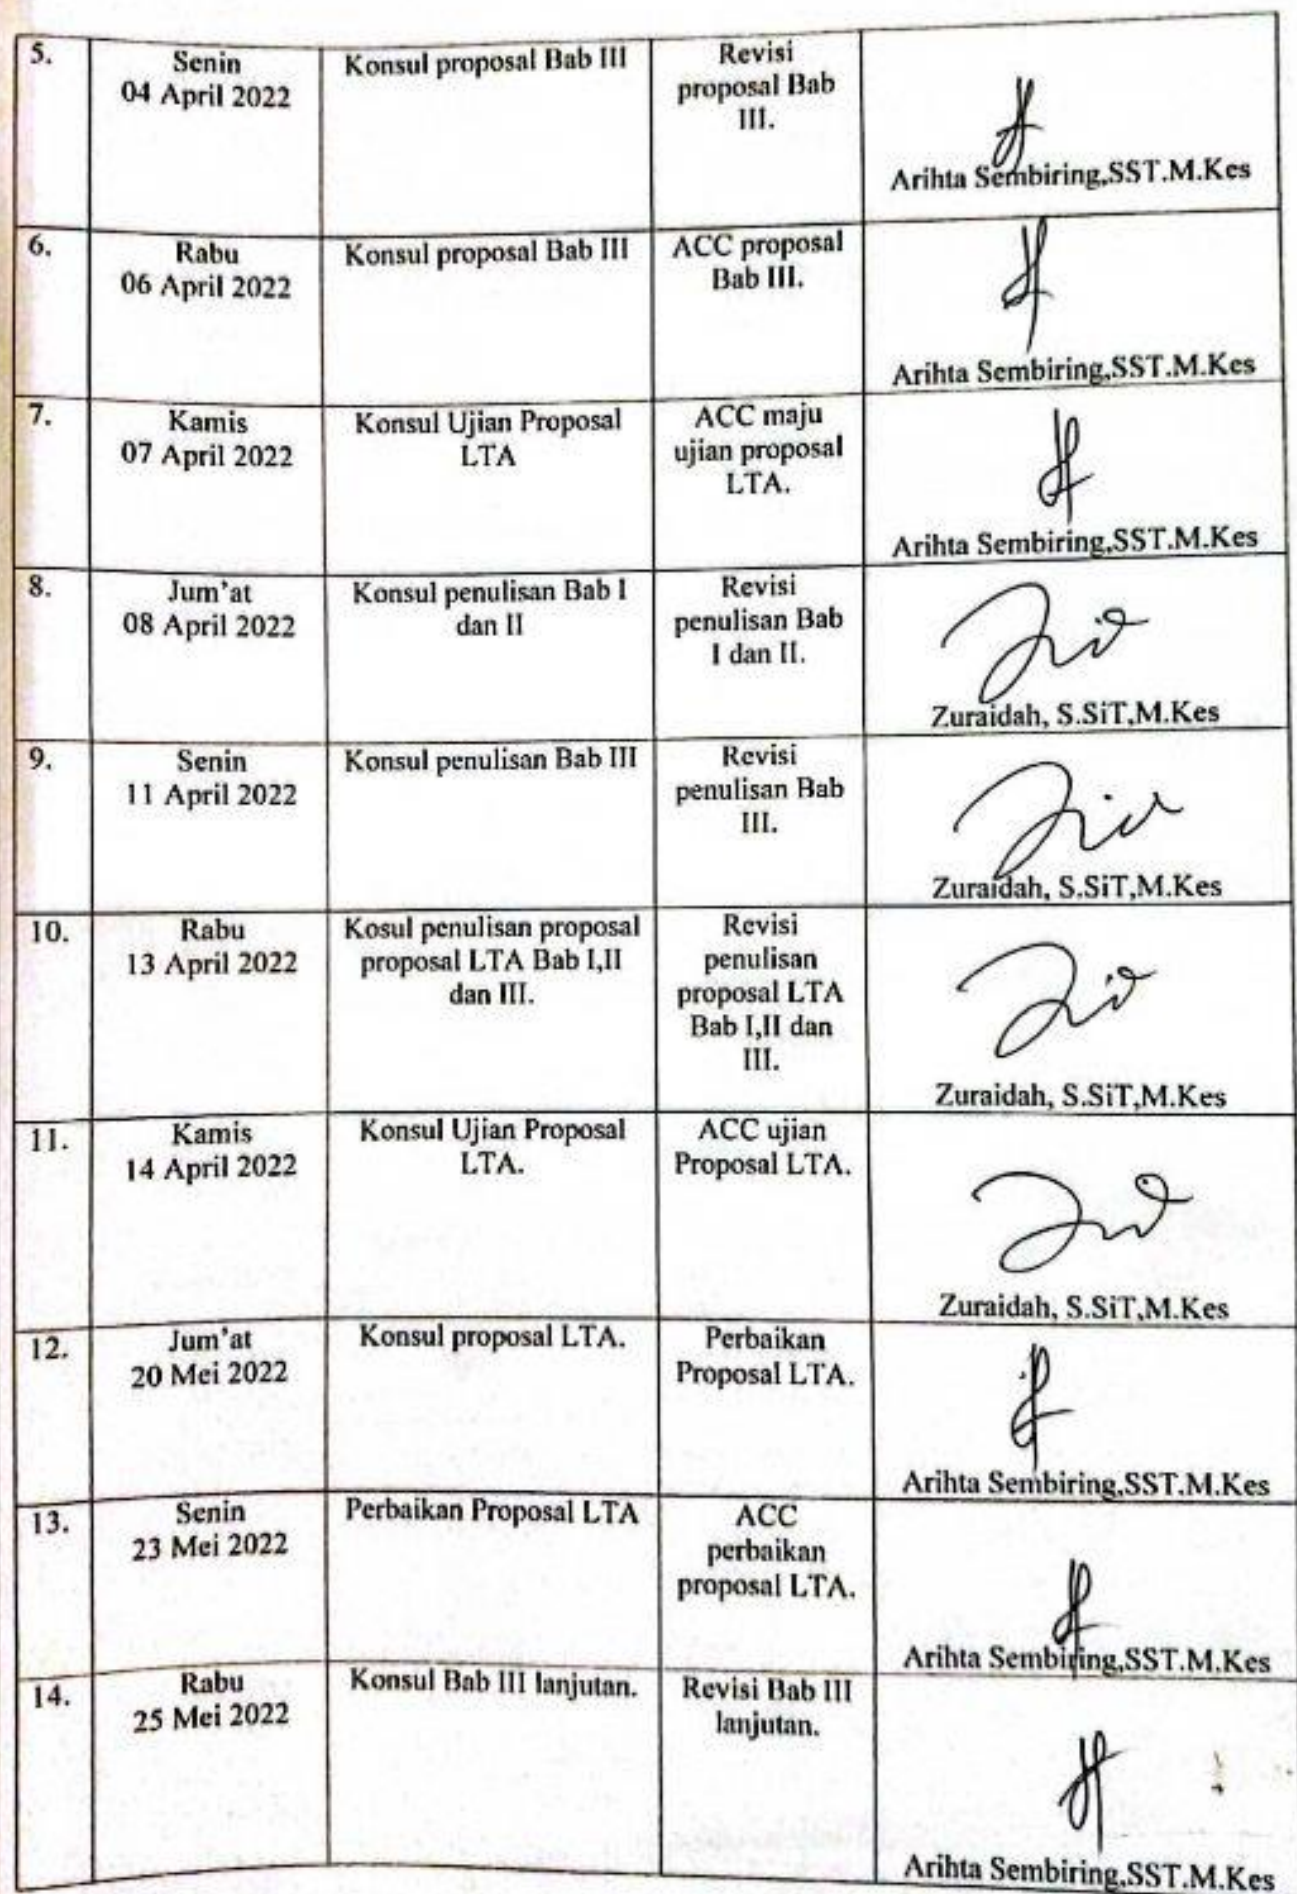 5.
Senin
04 April 2022
Konsul proposal Bab III
Revisi
proposal Bab
III.
Arihta Sembiring,SST.M.Kes
6.
Rabu
06 April 2022
Konsul proposal Bab III
ACC proposal
Bab III.
Arihta Sembiring,SST.M.Kes
7.
Kamis
07 April 2022
Konsul Ujian Proposal
LTA
ACC maju
ujian proposal
LTA.
Arihta Sembiring,SST.M.Kes
8.
Jum'at
08 April 2022
Konsul penulisan Bab I
dan II
Revisi
penulisan Bab
I dan II.
Zuraidah, S.SiT,M.Kes
9.
Senin
11 April 2022
Konsul penulisan Bab III
Revisi
penulisan Bab
III.
Zuraidah, S.SiT,M.Kes
10.
Rabu
13 April 2022
Kosul penulisan proposal
proposal LTA Bab I,II
dan III.
Revisi
penulisan
proposal LTA
Bab I,II dan
III.
Zuraidah, S.SiT,M.Kes
11.
Kamis
14 April 2022
Konsul Ujian Proposal
LTA.
ACC ujian
Proposal LTA.
Zuraidah, S.SiT,M.Kes
12.
Jum'at
20 Mei 2022
Konsul proposal LTA.
Perbaikan
Proposal LTA.
Arihta Sembiring,SST.M.Kes
13.
Senin
23 Mei 2022
Perbaikan Proposal LTA
ACC
perbaikan
proposal LTA.
Arihta Sembiring,SST.M.Kes
14.
Rabu
25 Mei 2022
Konsul Bab III lanjutan.
Revisi Bab III
lanjutan.
Arihta Sembiring,SST.M.Kes